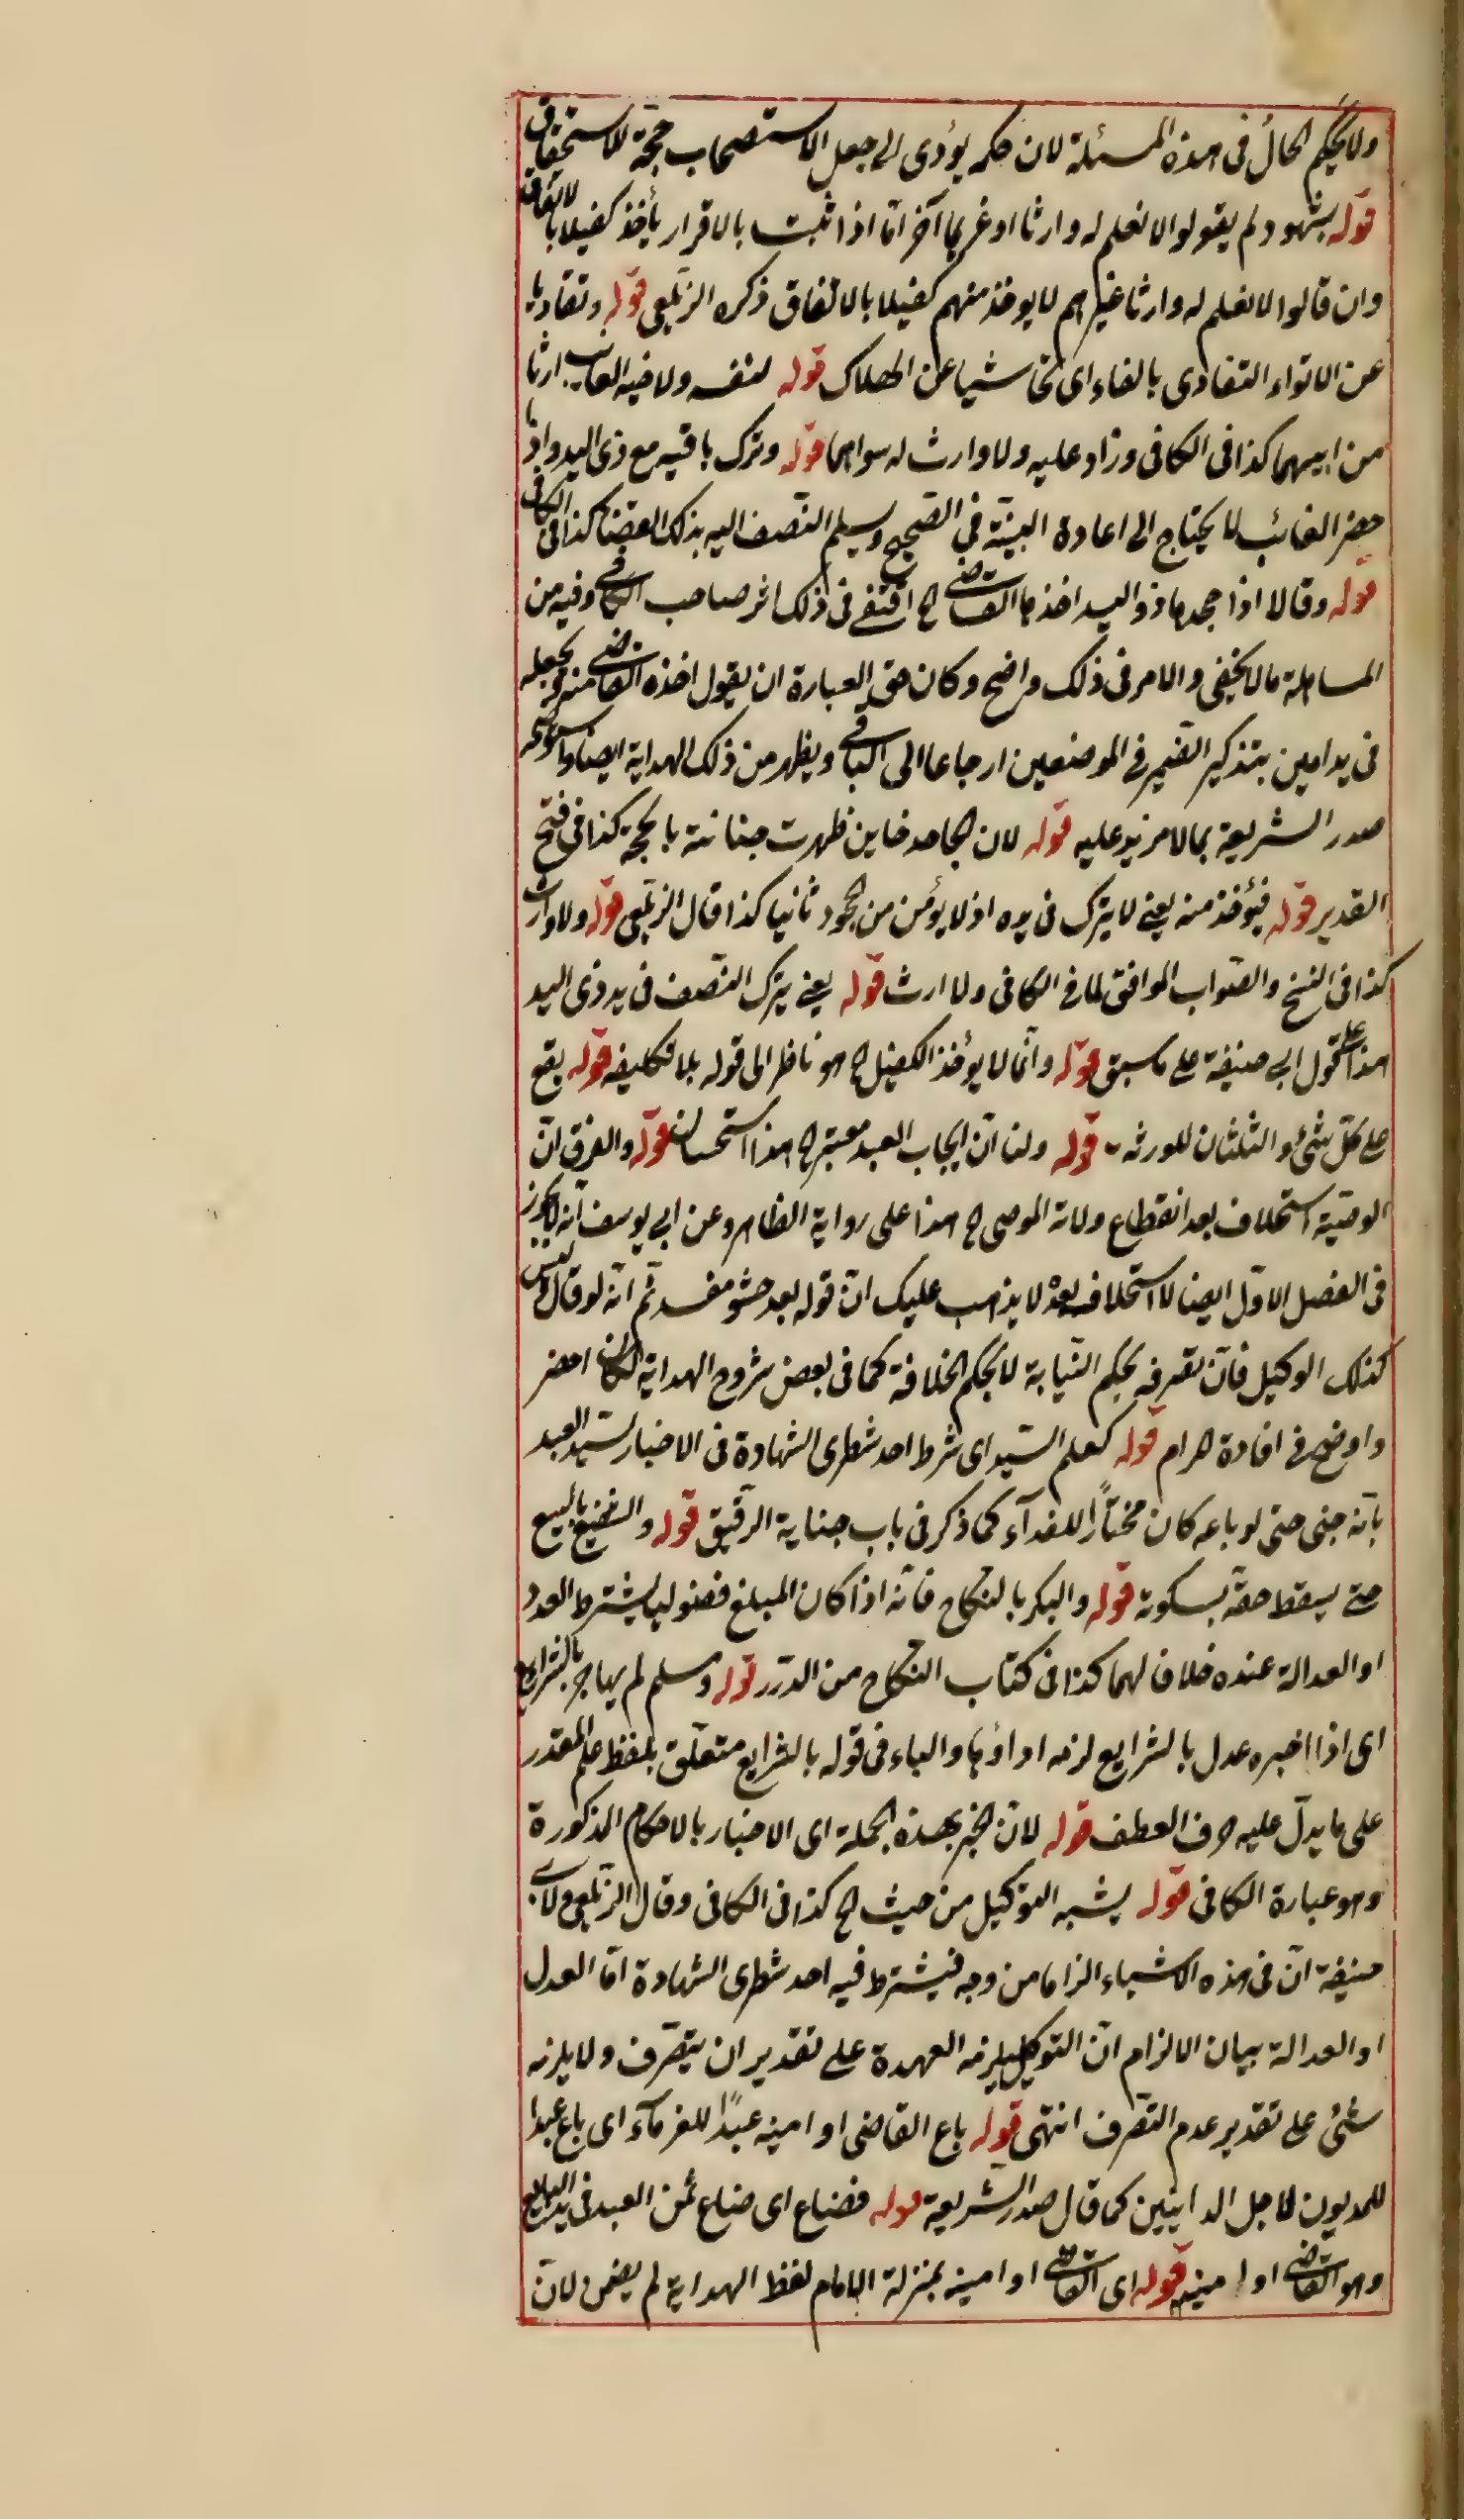 ولا يحكم الحال فى هذه المسئلة لان حكمه يؤدى الى جعل الاستصحاب حجة للاستحقاق
قوله بشهود لم يقولوا لا نعلم له وارثا او غريما آخر امّا اذا ثبت بالاقرار يأخذ كفيلا بالاتفاق
وان قالوا لا نعلم له وارثا غيرهم لا يوخذ منهم كفيلا بالاتفاق ذكره الزيلعى قوله وتفاديا
عن الاتواء التفادى بالفاء اى تحاشيا عن الهلاك قوله لنفسه ولاخيه الغايب ارثا
من ابيهما كذا فى الكافى وزاد عليه ولا وارث له سواهما قوله وترك باقيه مع ذى اليد واذا
حضر الغائب لا يحتاج الى اعادة البيّنة فى الصّحيح ويسلم النّصف اليه بذلك القضا كذا فى الكافى
قوله وقالا اذا جحدها ذو اليد اخذها القاضى الخ اقتفى فى ذلك اثر صاحب الكافى وفيه من
المساهلة ما لا يخفى والامر فى ذلك واضح وكان حق العبارة ان يقول اخذه القاضى منه ويجعله
فى يد امين بتذكير الضّمير فى الموضعين ارجاعا الى الباقى ويظهر من ذلك الهداية ايضا واستوفى
صدر الشريعة بما لا مزيد عليه قوله لان الجاحد خاين ظهرت خيانته بالحجة كذا فى فتح
القدير قوله فيؤخذ منه يعنى لا يترك فى يده اذ لا يؤمن من الجحود ثانيا كذا قال الزيلعى قوله ولا وارث
كذا فى النسخ والصّواب الموافق لما فى الكافى ولا ارث قوله يعنى يترك النّصف فى يد ذى اليد
هذا على قول ابى حنيفة على ما سبق قوله وانّما لا يؤخذ الكفيل الخ هو ناظر الى قوله بلا تكليفه قوله يقع
على كلّ شئ والثلثان للورثه قوله ولنا انّ ايجاب العبد معتبر الخ هذا استحسان قوله والفرق انّ
الوصيّة استخلاف بعد انقطاع ولاية الموصى الخ هذا على رواية الظاهر وعن ابى يوسف انّه لا يجوز
فى الفصل الاوّل ايضا لا استخلاف بعده لا يذهب عليك انّ قوله بعد حشو مفسد ثم انّه لو قال وليس
كذلك الوكيل فانّ تصرفه بحكم النّيابة لا بحكم الخلافة كما فى بعض شروح الهداية لكان اخصر
واوضح فى افادة المرام قوله كعلم السّيد اى شرط احد شطرى الشهادة فى الاخبار لسّيد العبد
بانّه جنى حتى لو باعه كان مختارًا للفدآء كما ذكر فى باب جناية الرّقيق قوله والشفيع بالبيع
حتى يسقط حقّه بسكوته قوله والبكر بالنكاح فانّه اذا كان المبلغ فضوليا يشترط العدد
او العدالة عنده خلافا لهما كذا فى كتاب النكاح من الدّرر قوله ومسلم لم يهاجر بالشرايع
اى اذا اخبره عدل بالشرايع لزمه اداؤها والباء فى قوله بالشرايع متعلّق بلفظ علم المقدر
على ما يدلّ عليه حرف العطف قوله لانّ الخبر بهذه الجملة اى الاخبار بالاحكام المذكورة
وهو عبارة الكافى قوله يشبه التوكيل من حيث الخ كذا فى الكافى وقال الزيلعى ولابى
حنيفة انّ فى هذه الاشياء الزاما من وجه فيشترط فيه احد شطرى الشهادة امّا العدل
او العدالة بيان الالزام انّ التوكيل يلزمه العهدة على تقدير ان يتصّرف ولا يلزمه
شئ على تقدير عدم التصّرف انتهى قوله باع القاضى او امينه عبدًا للغرمآء اى باع عبدا
للمديون لاجل الداينين كما قال صدر الشريعة قوله فضاع اى ضاع ثمن العبد فى يد البايع
وهو القاضى او امينه قوله اى القاضى او امينه بمنزلة الامام لفظ الهداية لم يضمن لانّ